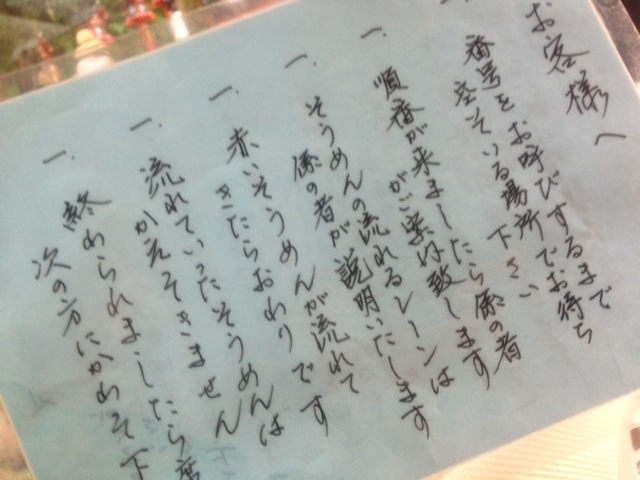 お客様へ
一、番号をお呼びするまで
空そいる場所でお待ち
下さい
一、順番が来ましたら係の者
がご案内致します
一、そうめんの流れるレーンは
係の者が説明いたします
一、赤いそうめんが流れて
きたらおわりです
一、流れていったそうめんは
かえそきません
一、終わられましたら席
次の方にかわそ下